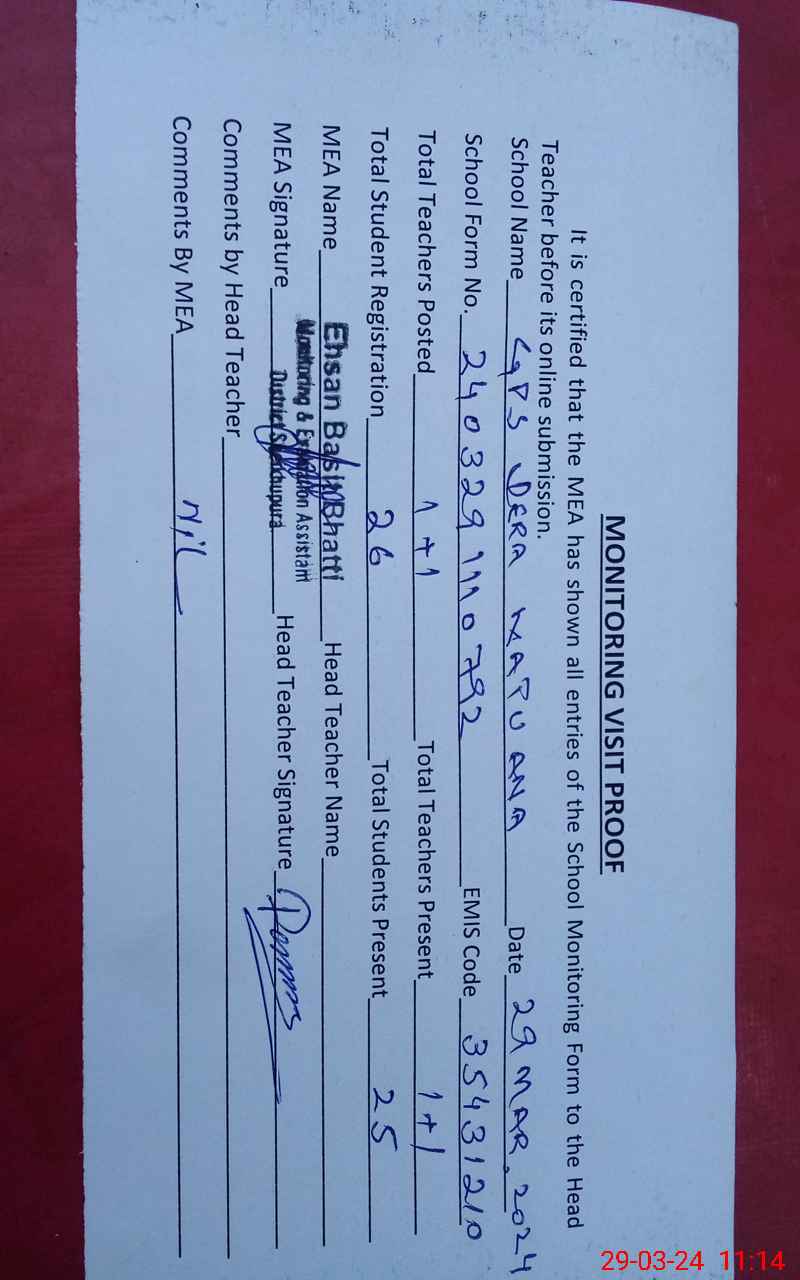 MONITORING VISIT PROOF
It is certified that the MEA has shown all entries of the School Monitoring Form to the Head
Teacher before its online submission.
School Name GPS DERA Date 29 MAR, 2024
School Form No. 2403291110792 EMIS Code 35431210
Total Teachers Posted 1+1 Total Teachers Present 1+1
Total Student Registration 26 Total Students Present 25
MEA Name Ehsan Basit Bhatti Head Teacher Name
Monitoring & Evaluation Assistant
MEA Signature District Sheikhupura Head Teacher Signature
Comments by Head Teacher
Comments By MEA Nil
29-03-24 11:14